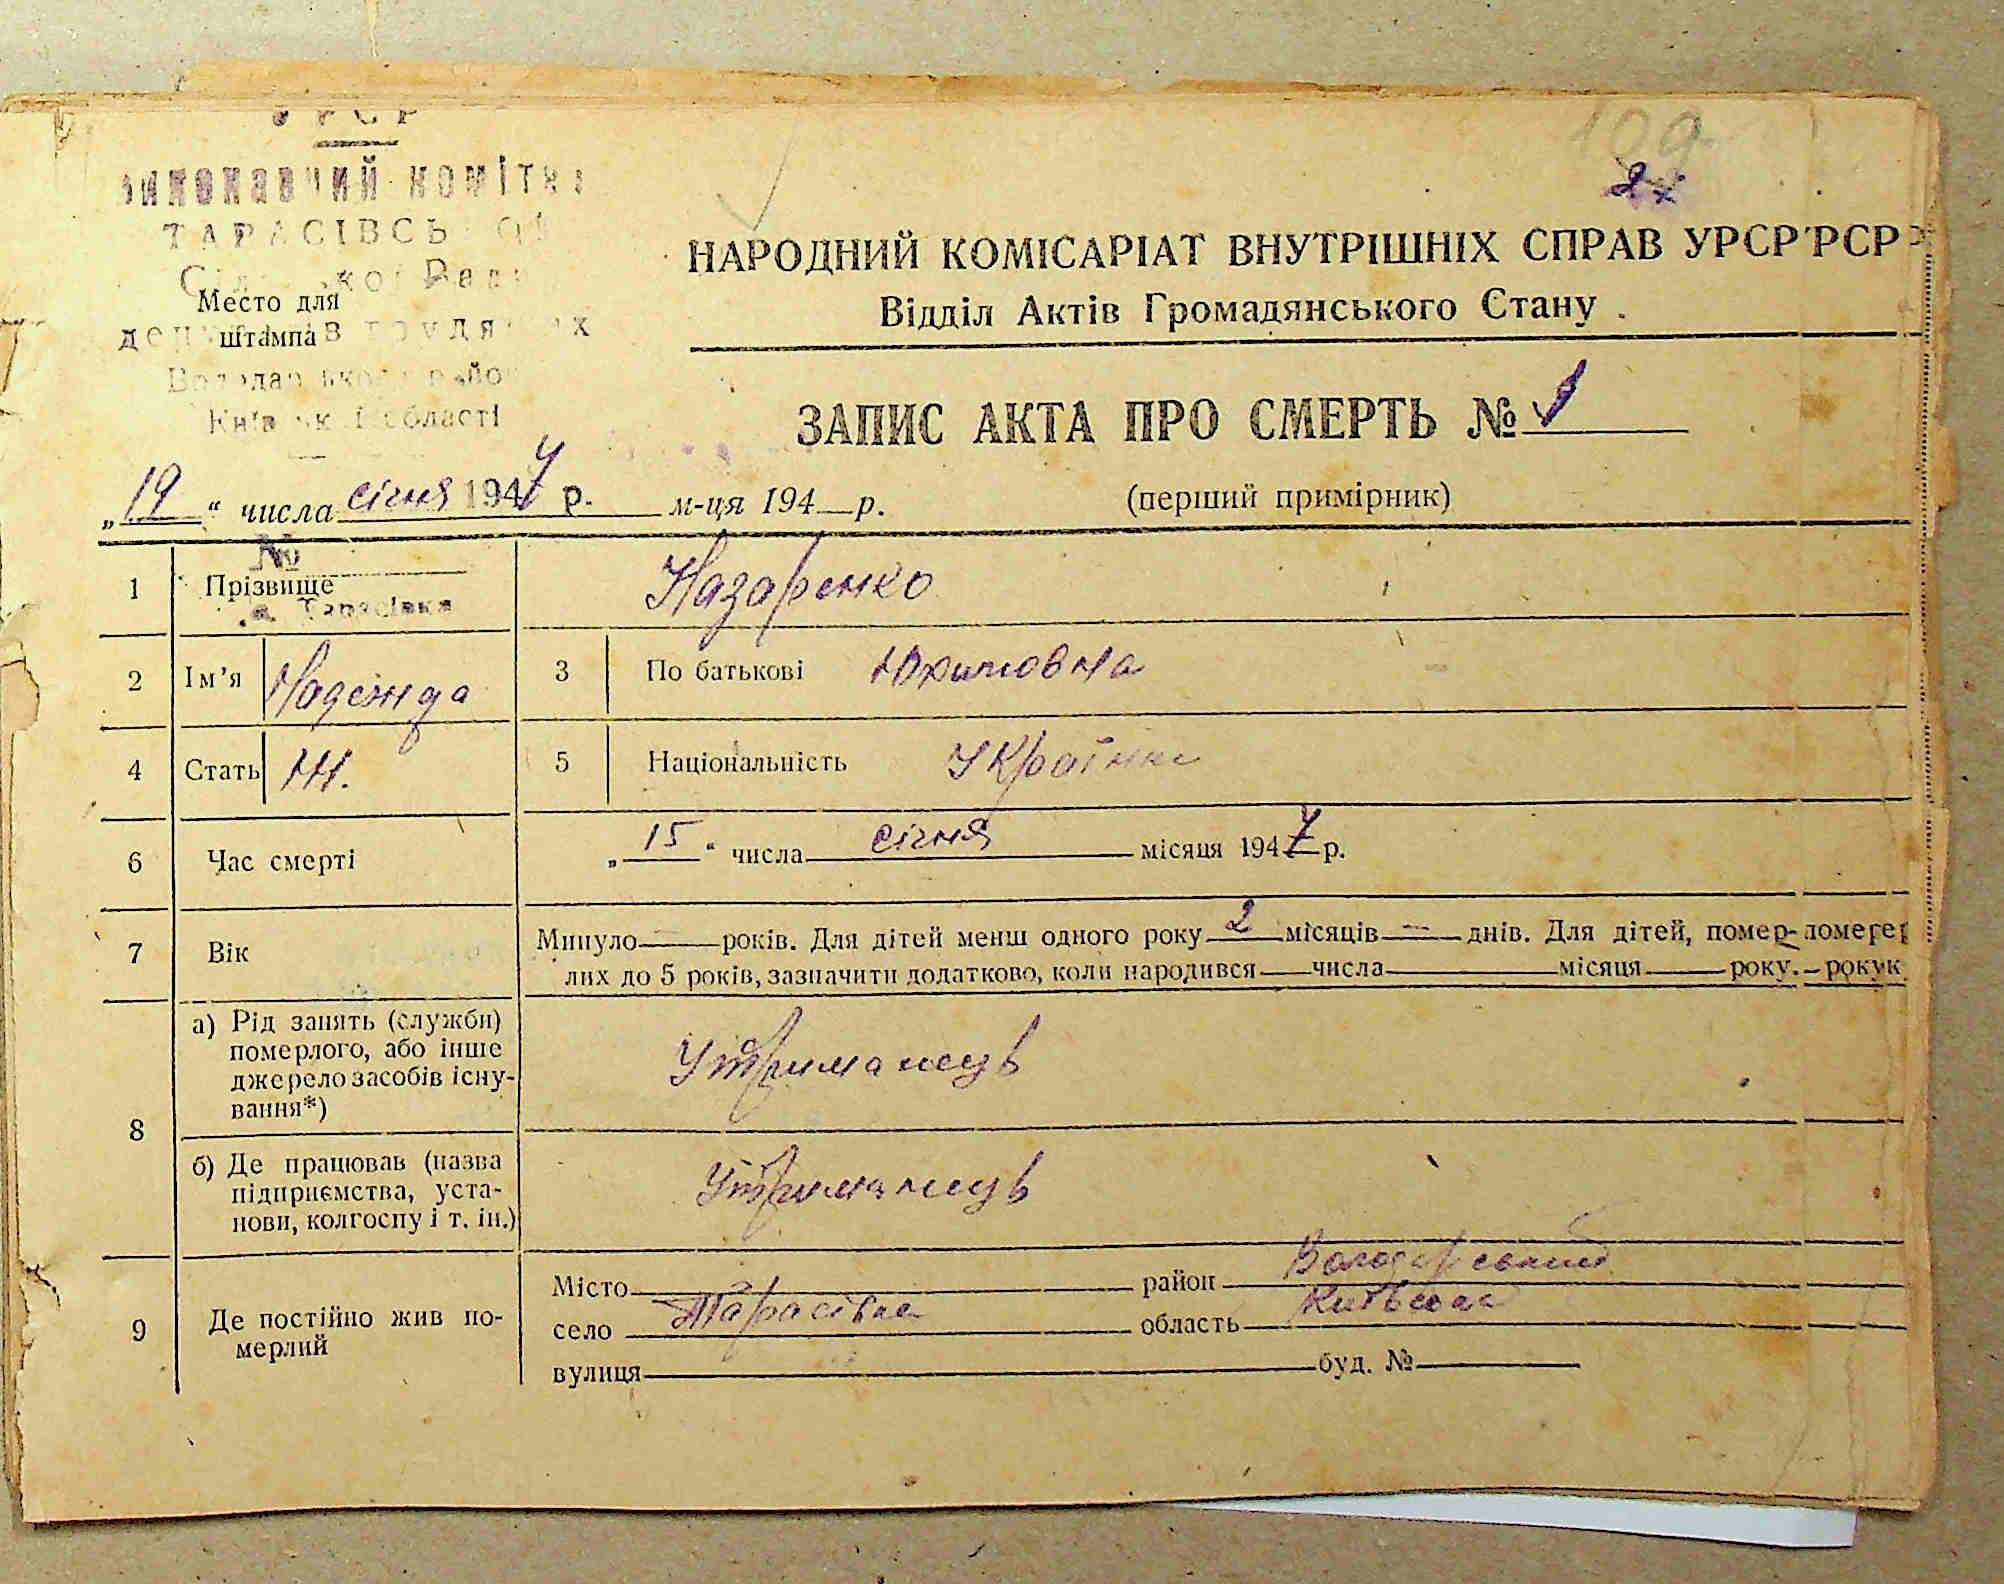 УРСР
виконавчий комітет
ТАРАСІВСЬКОЇ
Сільської Ради
Место для
штампа
депутатів трудящих
Володарського району
Київської області
109
27
НАРОДНИЙ КОМІСАРІАТ ВНУТРІШНІХ СПРАВ УРСР РСР
Відділ Актів Громадянського Стану
ЗАПИС АКТА ПРО СМЕРТЬ №
„19“ числа січня 1947 р. м-ця 194 р.
(перший примірник)
№
с. Тарасівка
1 Прізвище Назаренко
2 Ім’я Надежда 3 По батькові Юхимовна
4 Стать Ж. 5 Національність Українка
6 Час смерті „15“ числа січня місяця 1947 р.
7 Вік Минуло — років. Для дітей менш одного року 2 місяців — днів. Для дітей, помер- померег
лих до 5 років, зазначити додатково, коли народився числа місяця року. рокук
8 а) Рід занять (служби)
померлого, або інше
джерело засобів існу-
вання*)
Утриманець
б) Де працював (назва
підприємства, уста-
нови, колгоспу і т. ін.)
Утриманець
9 Де постійно жив по-
мерлий
Місто район Володарський
село Тарасівка область Київська
вулиця буд. №